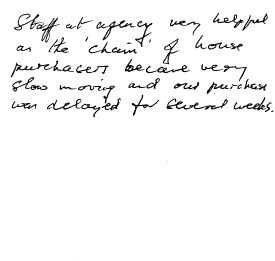 Staff at agency very helpful
as the 'chain' of house
purchasers became very
slow moving and our purchase
was delayed for several weeks.